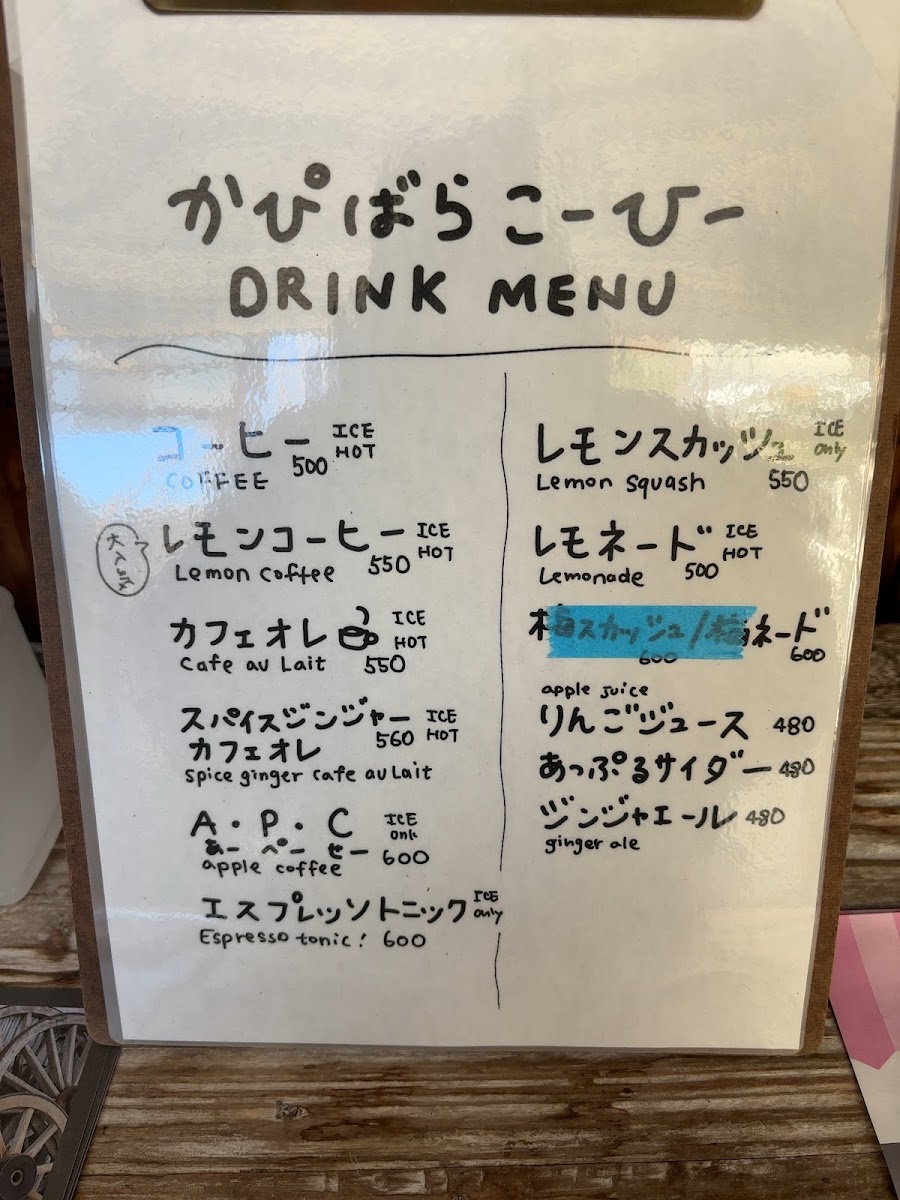 かぴばらこーひー
DRINK MENU
コーヒー ICE
HOT
COFFEE 500
大人気
レモンコーヒー ICE
HOT
Lemon coffee 550
カフェオレ ICE
HOT
Cafe au Lait 550
スパイスジンジャー ICE
HOT
カフェオレ 560
Spice ginger cafe au Lait
A・P・C ICE
only
あーぺーせー 600
apple coffee
エスプレッソトニック ICE
only
Espresso tonic! 600
レモンスカッシュ ICE
only
Lemon squash 550
レモネード ICE
HOT
Lemonade 500
梅スカッシュ/梅ネード
600 600
apple juice
りんごジュース 480
あっぷるサイダー 480
ジンジャエール 480
ginger ale